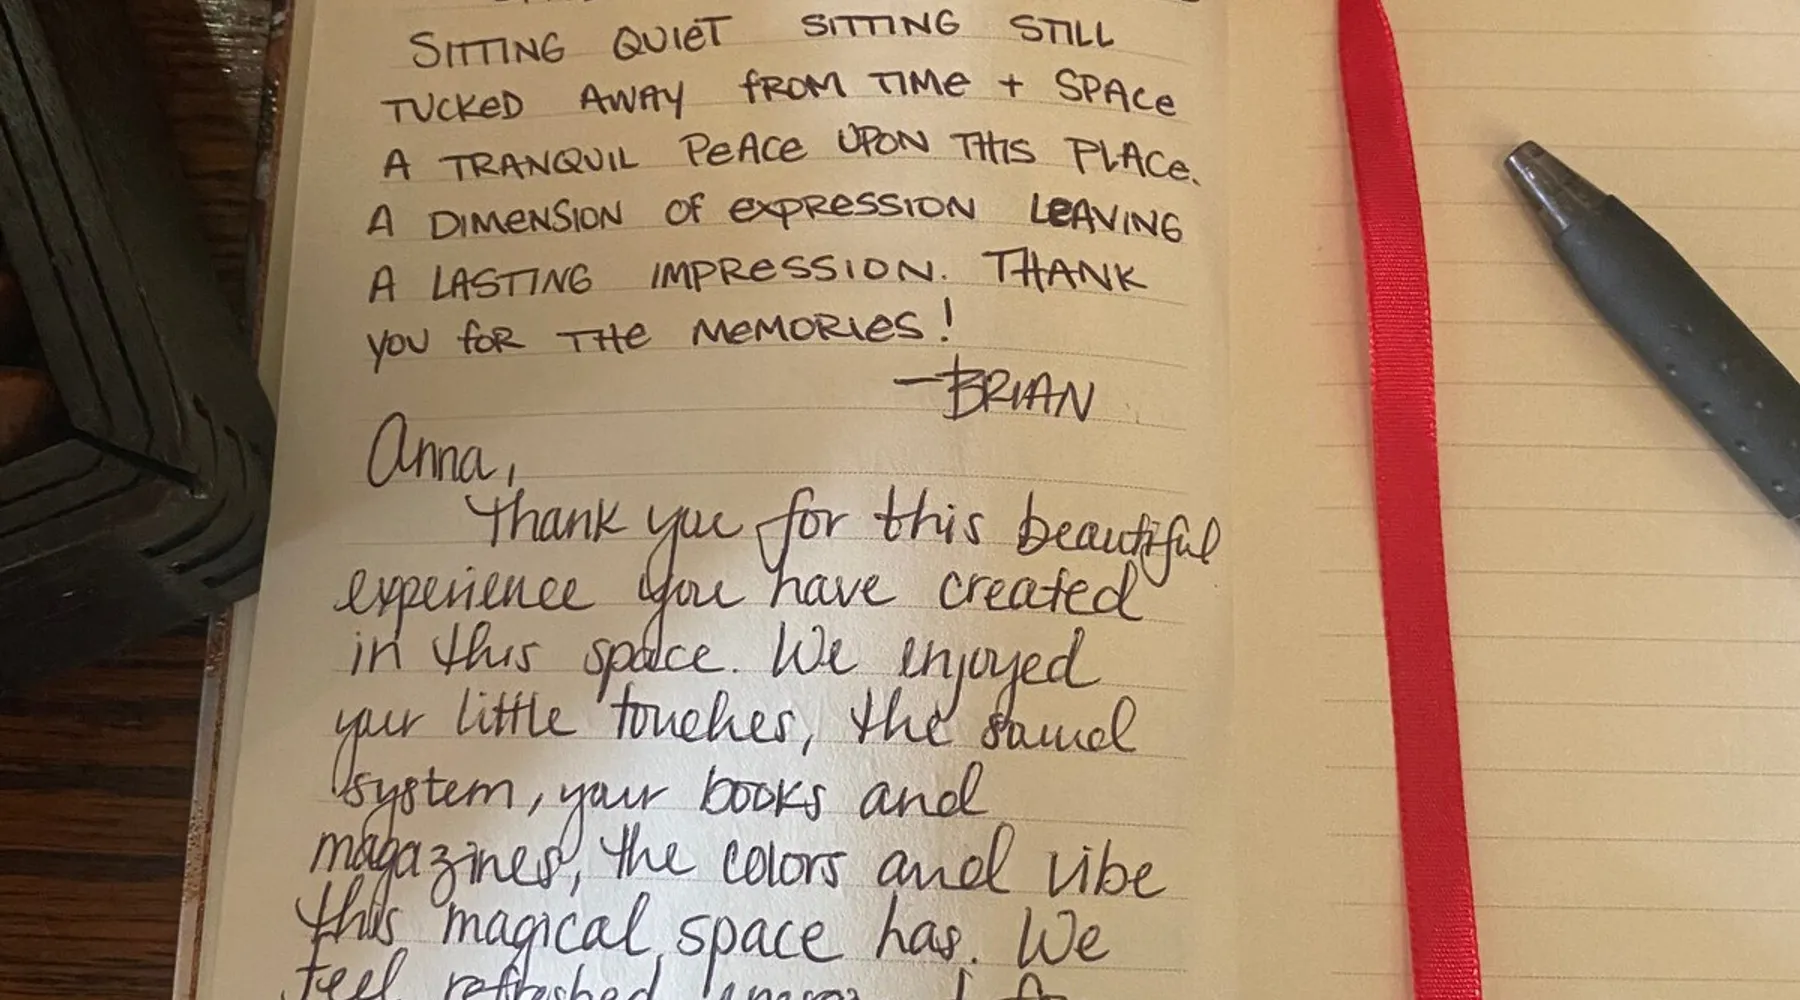 SITTING QUIET SITTING STILL
TUCKED AWAY FROM TIME + SPACE
A TRANQUIL PEACE UPON THIS PLACE.
A DIMENSION OF EXPRESSION LEAVING
A LASTING IMPRESSION. THANK
YOU FOR THE MEMORIES!
—BRIAN
Anna,
Thank you for this beautiful
experience you have created
in this space. We enjoyed
your little touches, the sound
system, your books and
magazines, the colors and vibe
this magical space has. We
feel refreshed